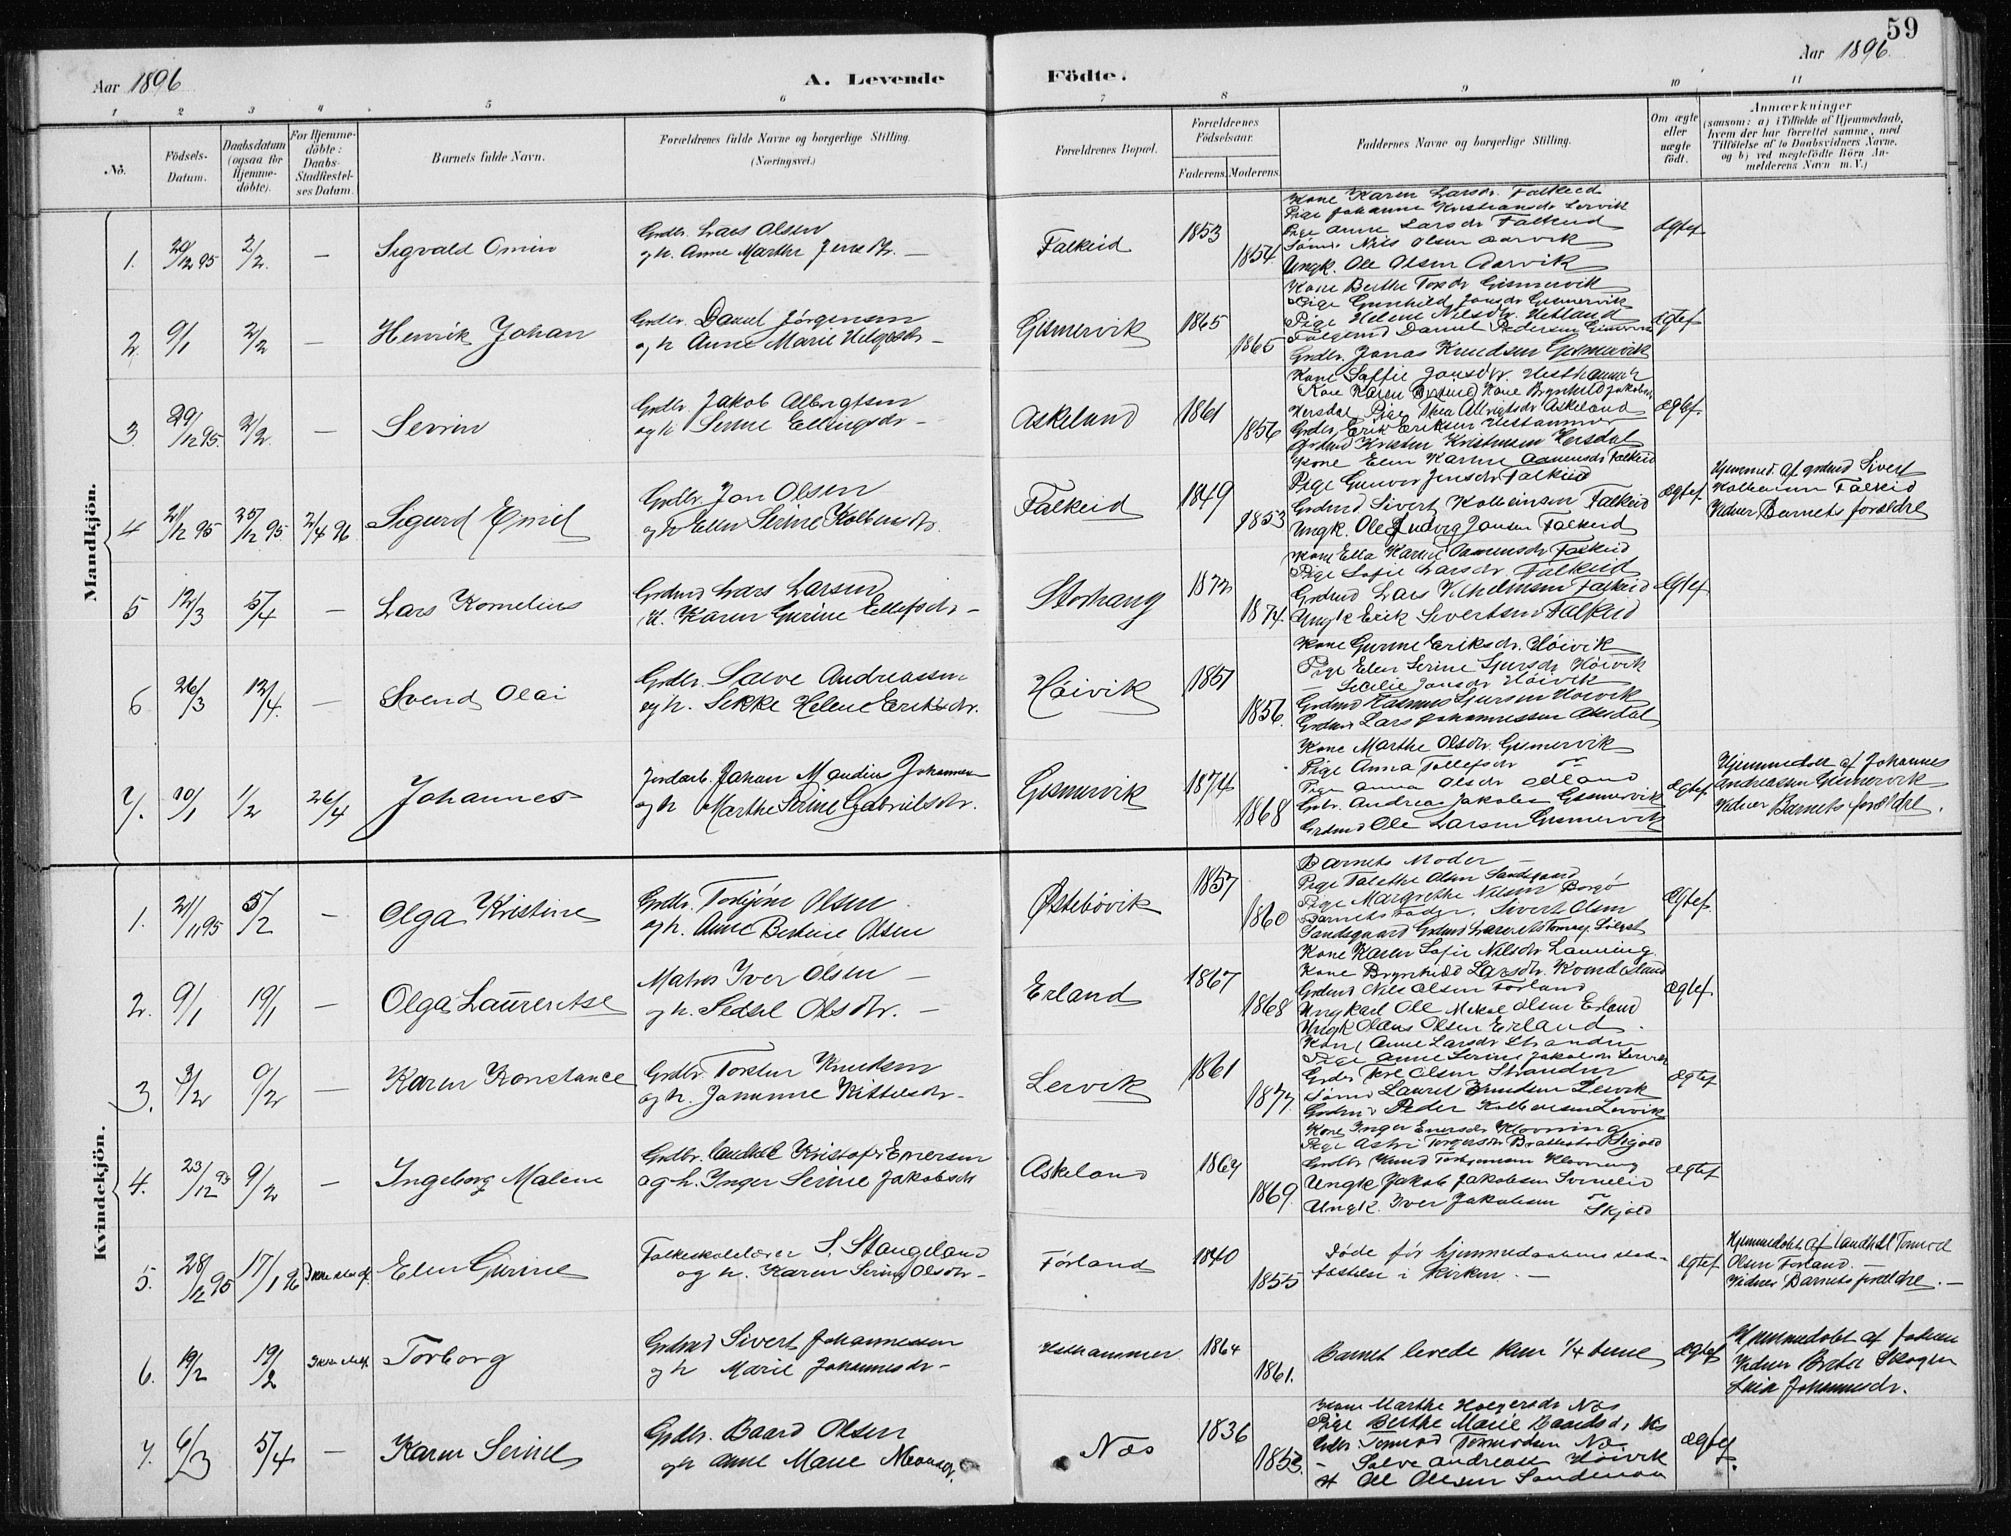 59
Aar 1896
A. Levende
Fødte.
Aar 1896
1 2 3 4 5 6 7 8 9 10 11
No.
Födsels-Datum.
Daabsdatum (ogsaa for Hjemme-döbte).
For Hjemme-döbte: Daabs-Stadfæstel-ses Datum.
Barnets fulde Navn.
Forældrenes fulde Navne og borgerlige Stilling.
(Næringsvei.)
Forældrenes Bopæl.
Forældrenes Födselsaar.
Faderens. Moderens.
Faddernes Navne og borgerlige Stilling.
Om ægte eller uægte födt.
Anmærkninger
(saasom: a) i Tilfælde af Hjemmedaab,
hvem der har forrettet samme, med
Tilföielse af to Daabsvidners Navne.
og b) ved uægtefödte Börn An-
melderens Navn m. V.)
Mandkjön.
1. 20/12 95 2/2 — Sigvald
Grdbr. Lars Olsen
og h. Anne Marthe —
Falkeid 1853 1854
Kone Karen Larsdr. Falkeid
Pige Johanne Kristiansdr Lervik
Pige Anne Larsdr Falkeid
Nils Olsen Aarvik
Ungk. Ole Olsen Aarvik
ægtef
2. 9/1 2/2 — Henrik Johan
Grdbr. Daniel Jörgensen
og h Anne Marie Helgesdr —
Gismervik 1865 1865
Kone Berthe Gismervik
Pige Gunhild Jansdr Gismervik
Pige Helene Nilsdr. Hetland
Daniel Pedersen Gismervik
Grdbr. Jonas Knudsen Gismervik
ægtef
3 29/12 95. 2/2 — Sevrin
Grdbr. Jakob Albrigtsen
og h Serine Ellingsdr —
Askeland 1861 1856
Kone Soffie Jansdr. Hesthammer
Kone Karen Kone Brynhild Jakobsdr
Hersdal Pige Thea Albrigtsdr Askeland
Grdbr. Erik Eriksen Hesthammer
Grdmd Kristen Kristensen Hersdal
ægtef
4 21/12 95 25/12 95 2/4 96 Sigurd Emil
Grdbr. Jon Olsen
og h Elen Serine Kolbensdr.
Falkeid 1849 1853
Kone Elen Karine Aamensdr Falkeid
Pige Gunvor Jensdr Falkeid
Grdmd Sivert Kolbeinsen Falkeid
Ungk. Ole Ludvig Jansen Falkeid
ægtef
Hjemmed. af grdmd Sivert
Kolbeinsen Falkeid
Vidner Barnets forældre
5 12/3 5/4 — Lars Kornelius
Grdmd Lars Larsen
h. Karen Gurine Ellefsdr —
Storhaug 1872 1874.
Kone Ella Karine Aamensdr Falkeid
Pige Sofie Larsdr. Falkeid
Grdmd Lars Falkeid
Ungk Erik Sivertsen Falkeid
ægtef
6 26/3 12/4. — Svend Olai
Grdbr. Salve Andreassen
og h. Sekke Helene Eriksdr.
Höivik 1851 1856.
Kone Gurine Eriksdr. Höivik
Pige Elen Serine Sjursdr Höivik
— Secilie Jansdr Höivik
Grdmd Rasmus Sjursen Höivik
Grdmd Lars Johannessen
7. 10/1 1/2 26/4 Johannes
Jordarb. Johan Mandius Johannesen
og h Marthe Serine Gabrielsdr.
Gismervik 1874 1868
Kone Marthe Olsdr. Gismervik
Pige Anna Tollefsdr do
Pige Anna Olsdr Ødland
Grbr. Andreas Jakobsen Gismervik
Grdmd Ole Larsen Gismervik
ægtef
Hjemmedöbt af Johannes
Andreassen Gismervik
Vidner Barnets forældre.
Kvindekjön.
1. 21/11 95 5/2 — Olga Kristine
Grdbr. Torbjörn Olsen
og h. Anne Bertine Olsen
Østebövik 1857 1860
Barnets Moder —
Pige Talethe Olsen Sandsgaard
Pige Margrethe Nilsen Borgö
Barnets Fader. Sivert Olsen
Sandsgaard Grdmd
ægtef.
2. 9/1 19/1 — Olga Laurentse
Matros Iver Olsen —
og h. Sedsel Olsdtr. —
Erland 1867 1868
Kone Karen Sofie Nilsdr Lanning
Kone Brynhild Larsdr.
Grdmd Nils Olsen Forland
Ungkarl Ole Mikal Olsen Erland
Ungk Olaus Olsen Erland.
ægtef
3. 3/2 9/2 — Karen Konstance
Grdbr. Torsten Knudsen
og h. Jannine Kittelsdr —
Lervik 1861 1877
Kone Anne Larsdr Stranden
Pige Anne Serine Jakobsdr Lervik
Grdbr Tore Olsen Stranden
Laurits Knudsen Lervik
Grdmd Peder Kolbensen Lervik
ægtef
4. 23/12 95 9/2 — Ingeborg Malene
Grdbr. landhdl Kristofer Enersen
og h. Inger Serine Jakobsdr
Askeland 1864 1869.
Kone Inger Enersdr Klovning
Pige Astri Torgersdr Skjold
Grdbr Knud Torbjörnsen Klovning
Ungk Jakob Jakobsen
Ungk. Iver Jakobsen do Skjold
ægtef
5. 28/12 95 17/1 96 Ikke stadf. Elen Gurine
Folkeskolelærer S. Stangeland
og h. Karen Serine Olsdr —
Förland 1840 1855
Döde för hjemmedaabens stad-
fæstelse i kirken. —
ægtef
Hjemmedöbt af landhdl Tormod
Olsen Förland. —
Vidner Barnets forældre. —
6. 19/2 19/2 Ikke stadf. Torborg
Grdmd Sivert Johannessen
og h Marie Johannesdr —
Hesthammer 1864 1861.
Barnet levede kun 1/4 time
ægtef
Hjemmedöbt af
Vidner
Johannesdr.
7. 6/3 5/4 — Karen Serine
Grdbr. Baard Olsen
og h Anne Marie
Næs 1836 1853.
Kone Marthe Holgersdr Næs
Pige Berthe Marie Baardsdr Næs
Grdbr. Tormod Tormodsen Næs
— Salve Andreassen Höivik
Ole Olsen
ægtef.